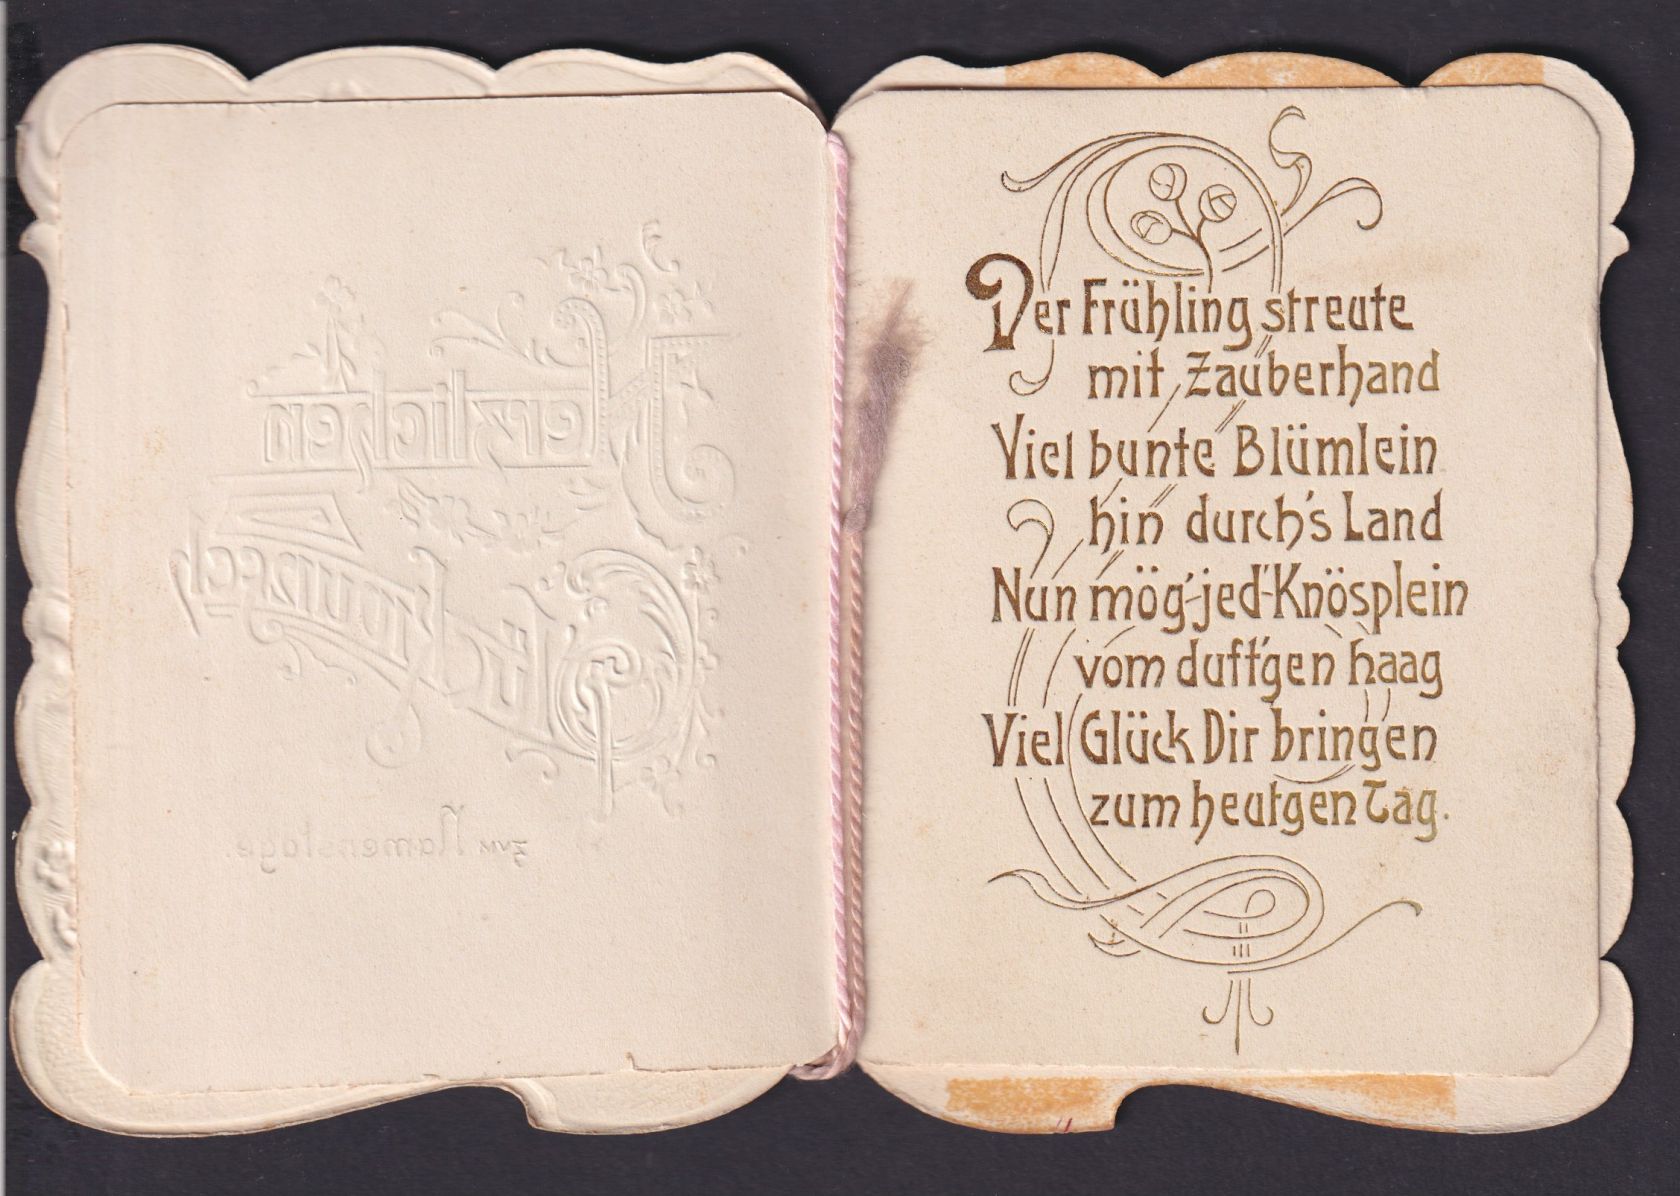 Herzlichen
Glückwunsch
zum Namenstage.
Der Frühling streute
mit Zauberhand
Viel bunte Blümlein
hin durch's Land
Nun mög'jed'Knösplein
vom duft'gen Haag
Viel Glück Dir bringen
zum heutgen Tag.